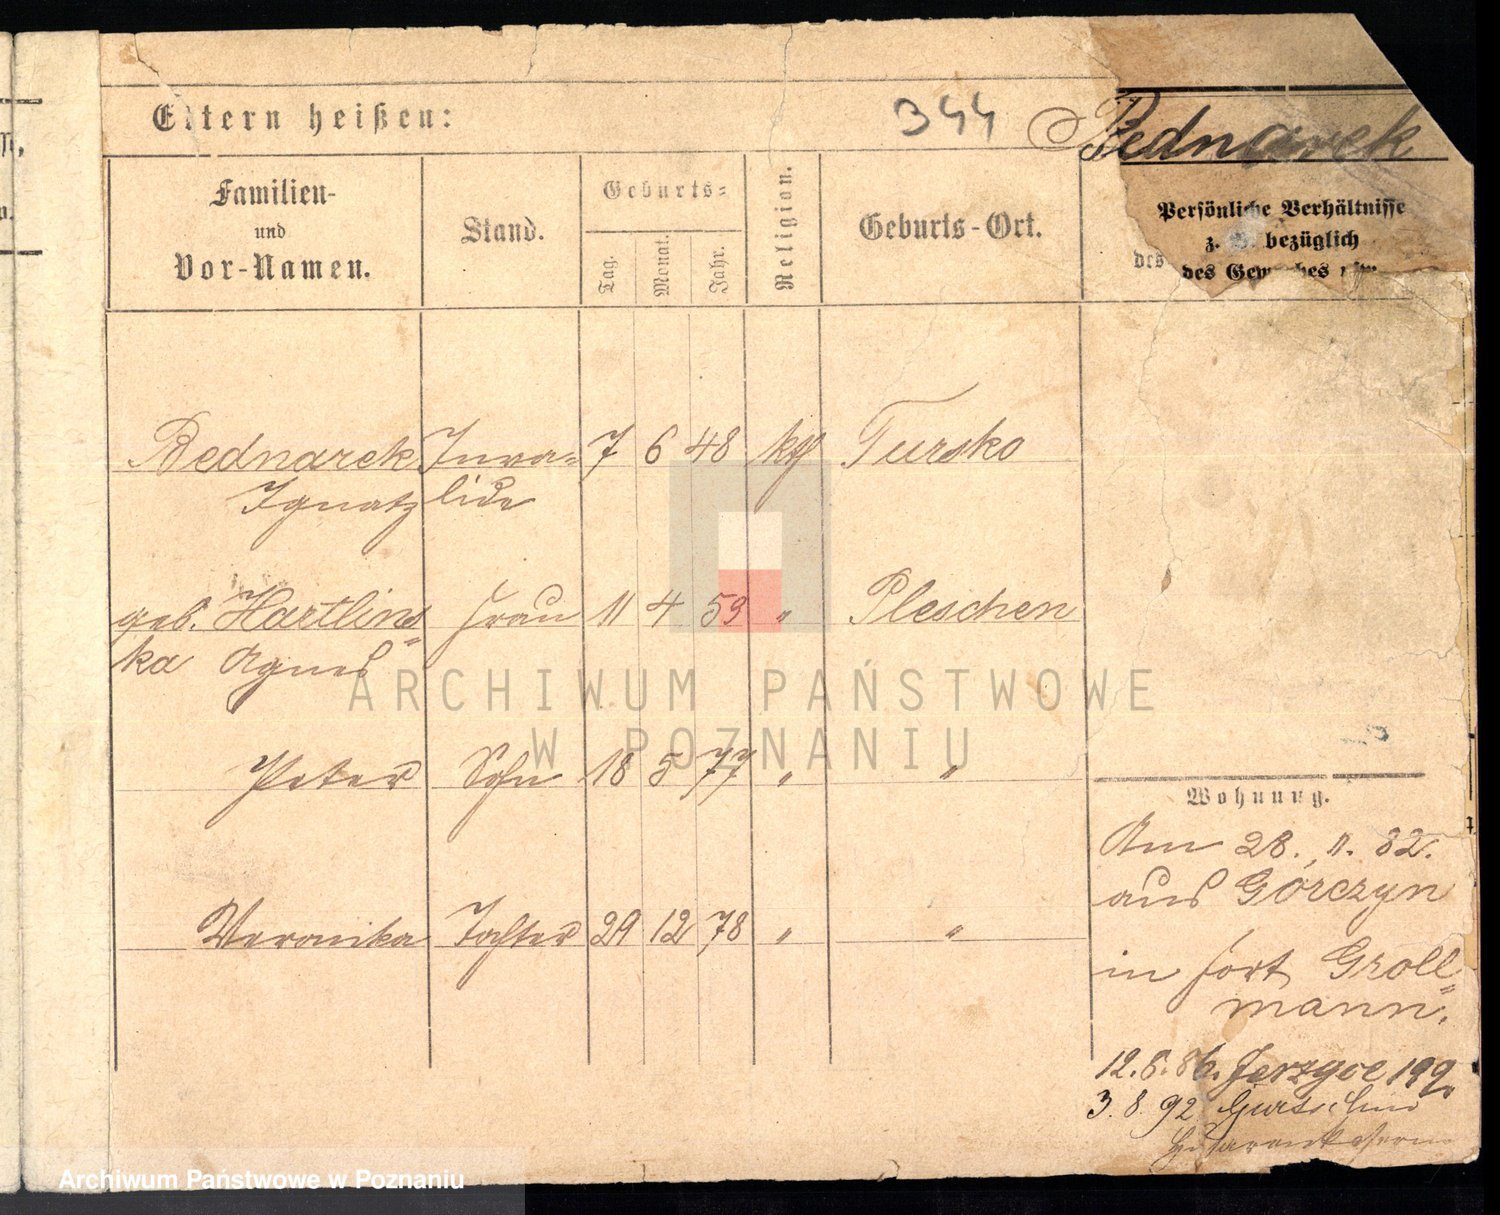 Eltern heißen:
344
Bednarek
Familien-
und
Vor-Namen.
Stand.
Geburts-
Tag.
Monat.
Jahr.
Religion.
Geburts-Ort.
Persönliche Verhältnisse
z. B. bezüglich
des Gewerbes usw.
des
Bednarek Inva- 7 6 48 kth Tursko
Ignatz lide
geb. Hartlins- Frau 11 4 59 " Pleschen
ka Agnes
Peter Sohn 18 5 77 " "
Veronika Tochter 29 12 78 " "
Wohnung.
Am 28. 11. 82.
aus Górczyn
in Fort Groll-
mann.
12. 6. 86. Jerzyce 199.
3. 8. 92 Gurtschin
Husarenkaserne
ARCHIWUM PAŃSTWOWE
W POZNANIU
Archiwum Państwowe w Poznaniu